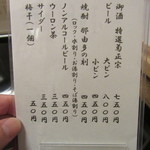 御酒 特選菊正宗 七五〇
ビール 大ビン 八〇〇
小ビン 五五〇
焼酎 那由多の刻 五五〇
(ロック・水割り・お湯割り・そば湯割り)
ノンアルコールビール 四五〇
ウーロン茶 三五〇
サイダー 三五〇
梅干(一個) 五〇